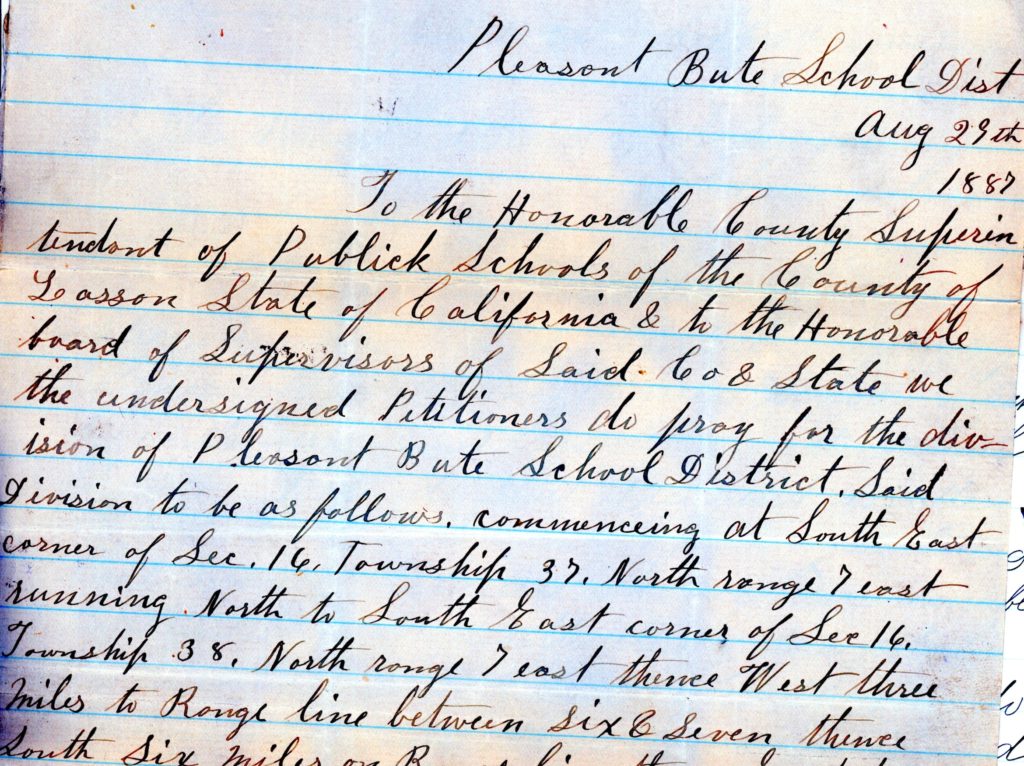 Pleasant Bute School Dist
Aug 29th
1887
To the Honorable County Superin
tendant of Publick Schools of the County of
Lasson State of California & to the Honorable
board of Supervisors of Said Co & State we
the undersigned Petitioners do pray for the div-
ision of Pleasant Bute School District. Said
Division to be as follows. commenceing at South East
corner of Sec. 16, Township 37. North range 7 east
running North to South East corner of Sec 16.
Township 38. North range 7 east thence West three
miles to Range line between Six & Seven thence
South Six miles on